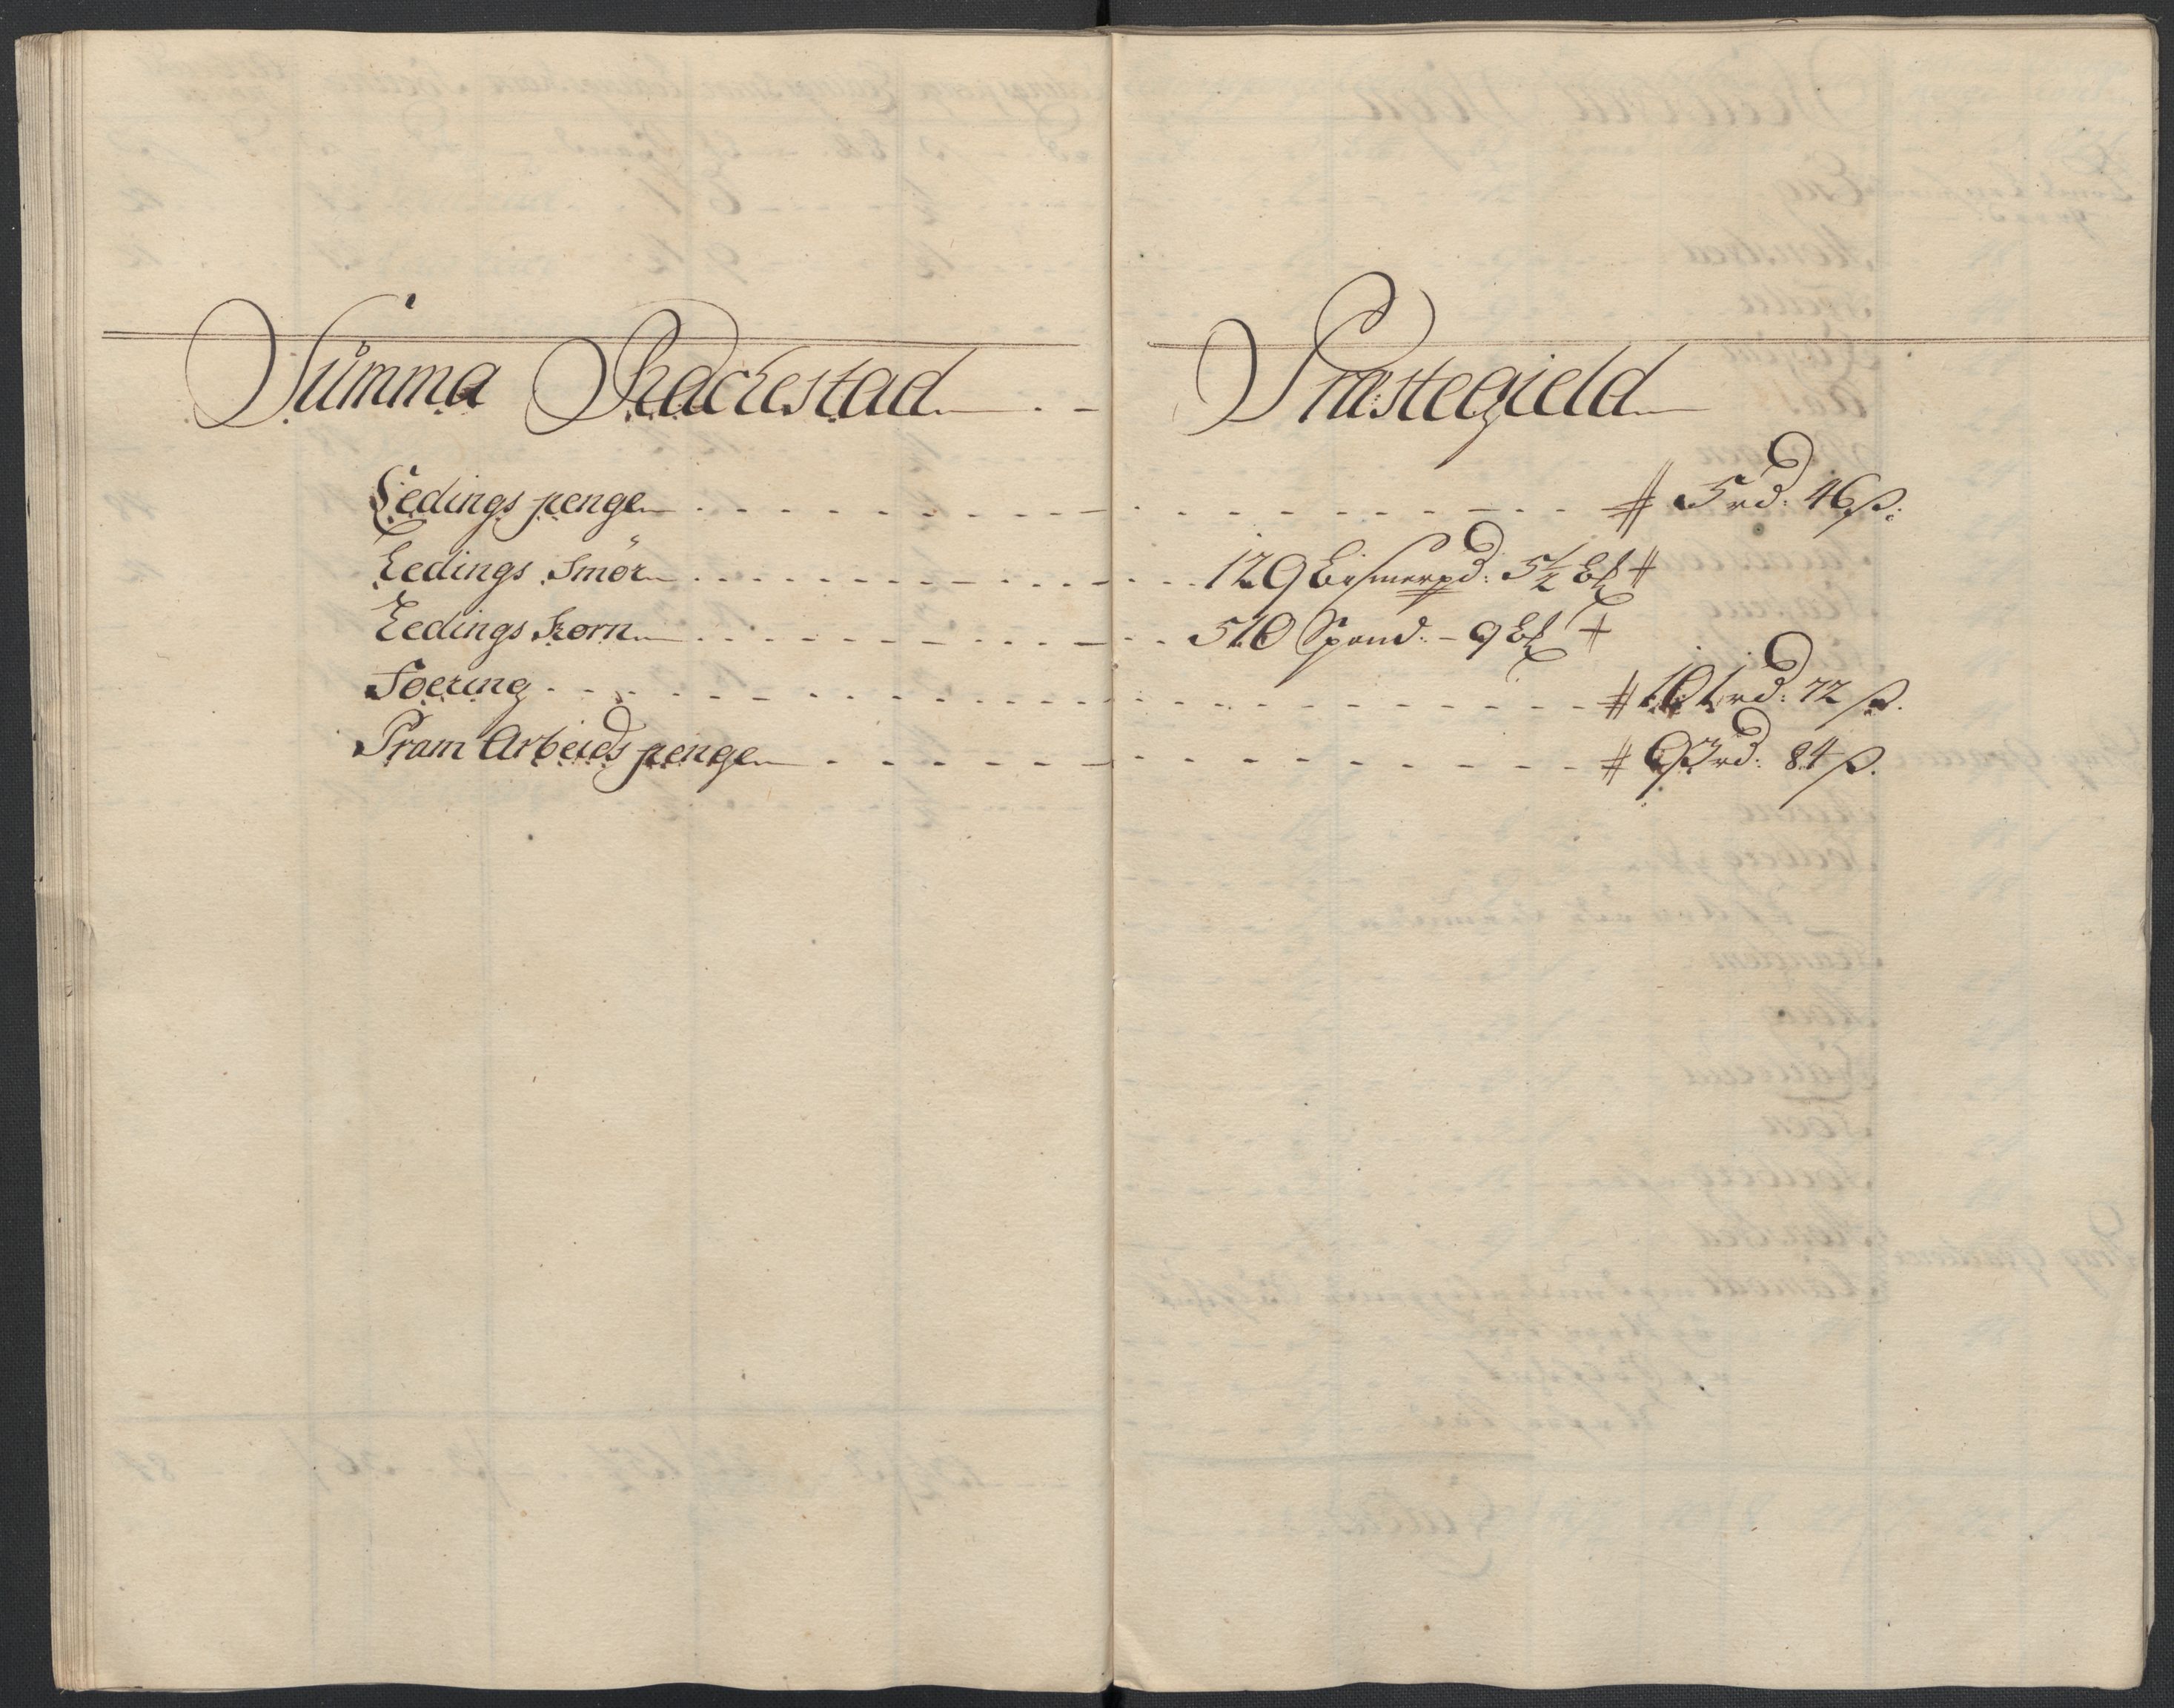 Summa Rachestad Præstegield
Ledings penge # 5 rd: 46 ß:
Ledings Smör 129 Bismerpd: 5½ ℔ #
Ledings Korn 510 Spand: - 9 ℔ #
Foering # 101 rd: 72 ß.
Pram Arbeids penge rd: 84 ß.